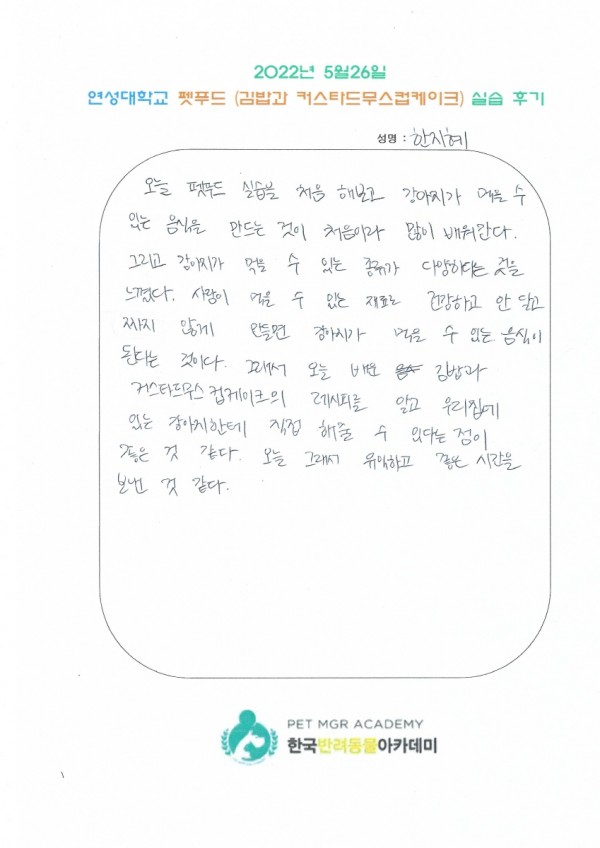 2022년 5월26일
연성대학교 펫푸드 (김밥과 커스타드무스컵케이크) 실습 후기
성명 : 한지혜
오늘 펫푸드 실습을 처음 해보고 강아지가 먹을 수
있는 음식을 만드는 것이 처음이라 많이 배워간다.
그리고 강아지가 먹을 수 있는 종류가 다양하다는 것을
느꼈다. 사람이 먹을 수 있는 재료로 건강하고 안 달고
짜지 않게 만들면 강아지가 먹을 수 있는 음식이
된다는 것이다. 그래서 오늘 배운 김밥과
커스타드무스 컵케이크의 레시피를 알고 우리집에
있는 강아지한테 직접 해줄 수 있다는 점이
좋은 것 같다. 오늘 그래서 유익하고 좋은 시간을
보낸 것 같다.
PET MGR ACADEMY
한국반려동물아카데미